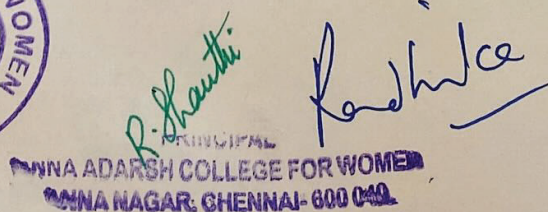 WOMEN
R. Shanthi
Radhika
PRINCIPAL
ANNA ADARSH COLLEGE FOR WOMEN
ANNA NAGAR, CHENNAI- 600 040.